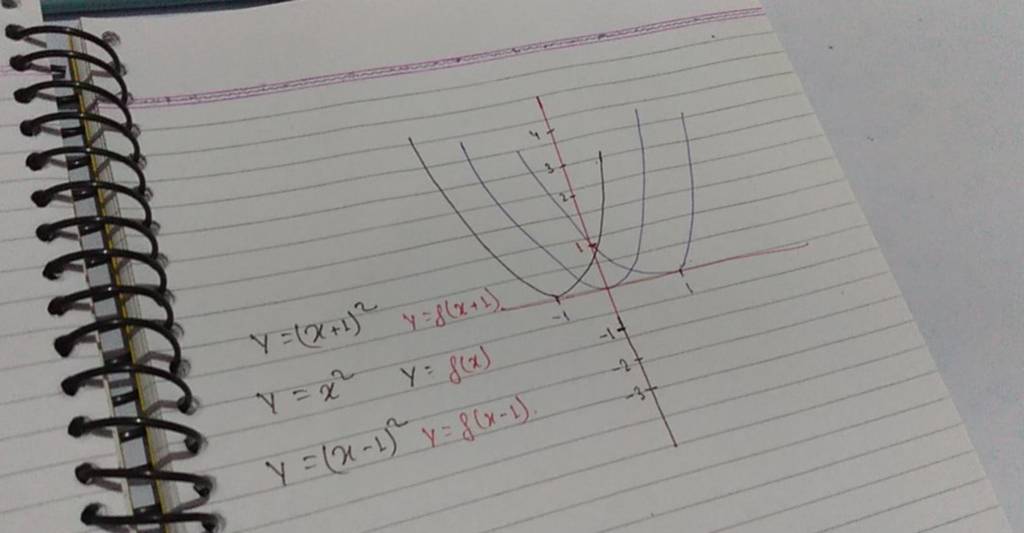 4
3
2
1
-1 1
-1
-2
-3
y = (x+1)² y = f(x+1).
y = x² y = f(x)
y = (x-1)² y = f(x-1).